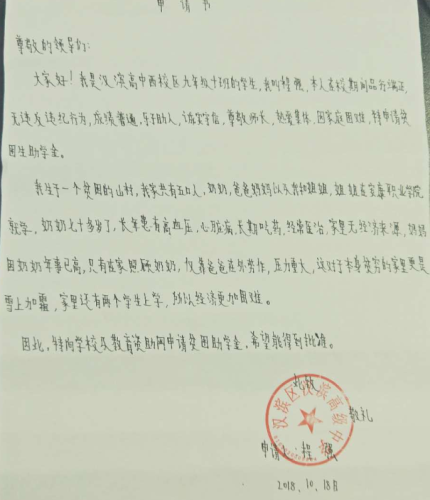 申请书
尊敬的领导们:
大家好!我是汉滨高中西校区九年级十班的学生,我叫程 ,本人在校期间品行端正,
无违反违纪行为,成绩普通,乐于助人,诚实守信,尊敬师长,热爱集体,因家庭困难,特申请贫
困生助学金。
我生于一个贫困的山村,我家共有五口人,奶奶,爸爸妈妈以及我和姐姐,姐姐在安康职业学院
就学,奶奶七十多岁了,长年患有高血压,心脏病,长期吃药,经常医治,家里无经济来源,妈妈
因奶奶年事已高,只有在家照顾奶奶,仅靠爸爸在外劳作,压力重大,这对于本身贫穷的家里更是
雪上加霜,家里还有两个学生上学,所以经济更加困难。
因此,特向学校及教育资助网申请贫困助学金,希望能得到批准。
此致
敬礼
汉滨区汉滨高级中学
申请人:程
2018.10.18日